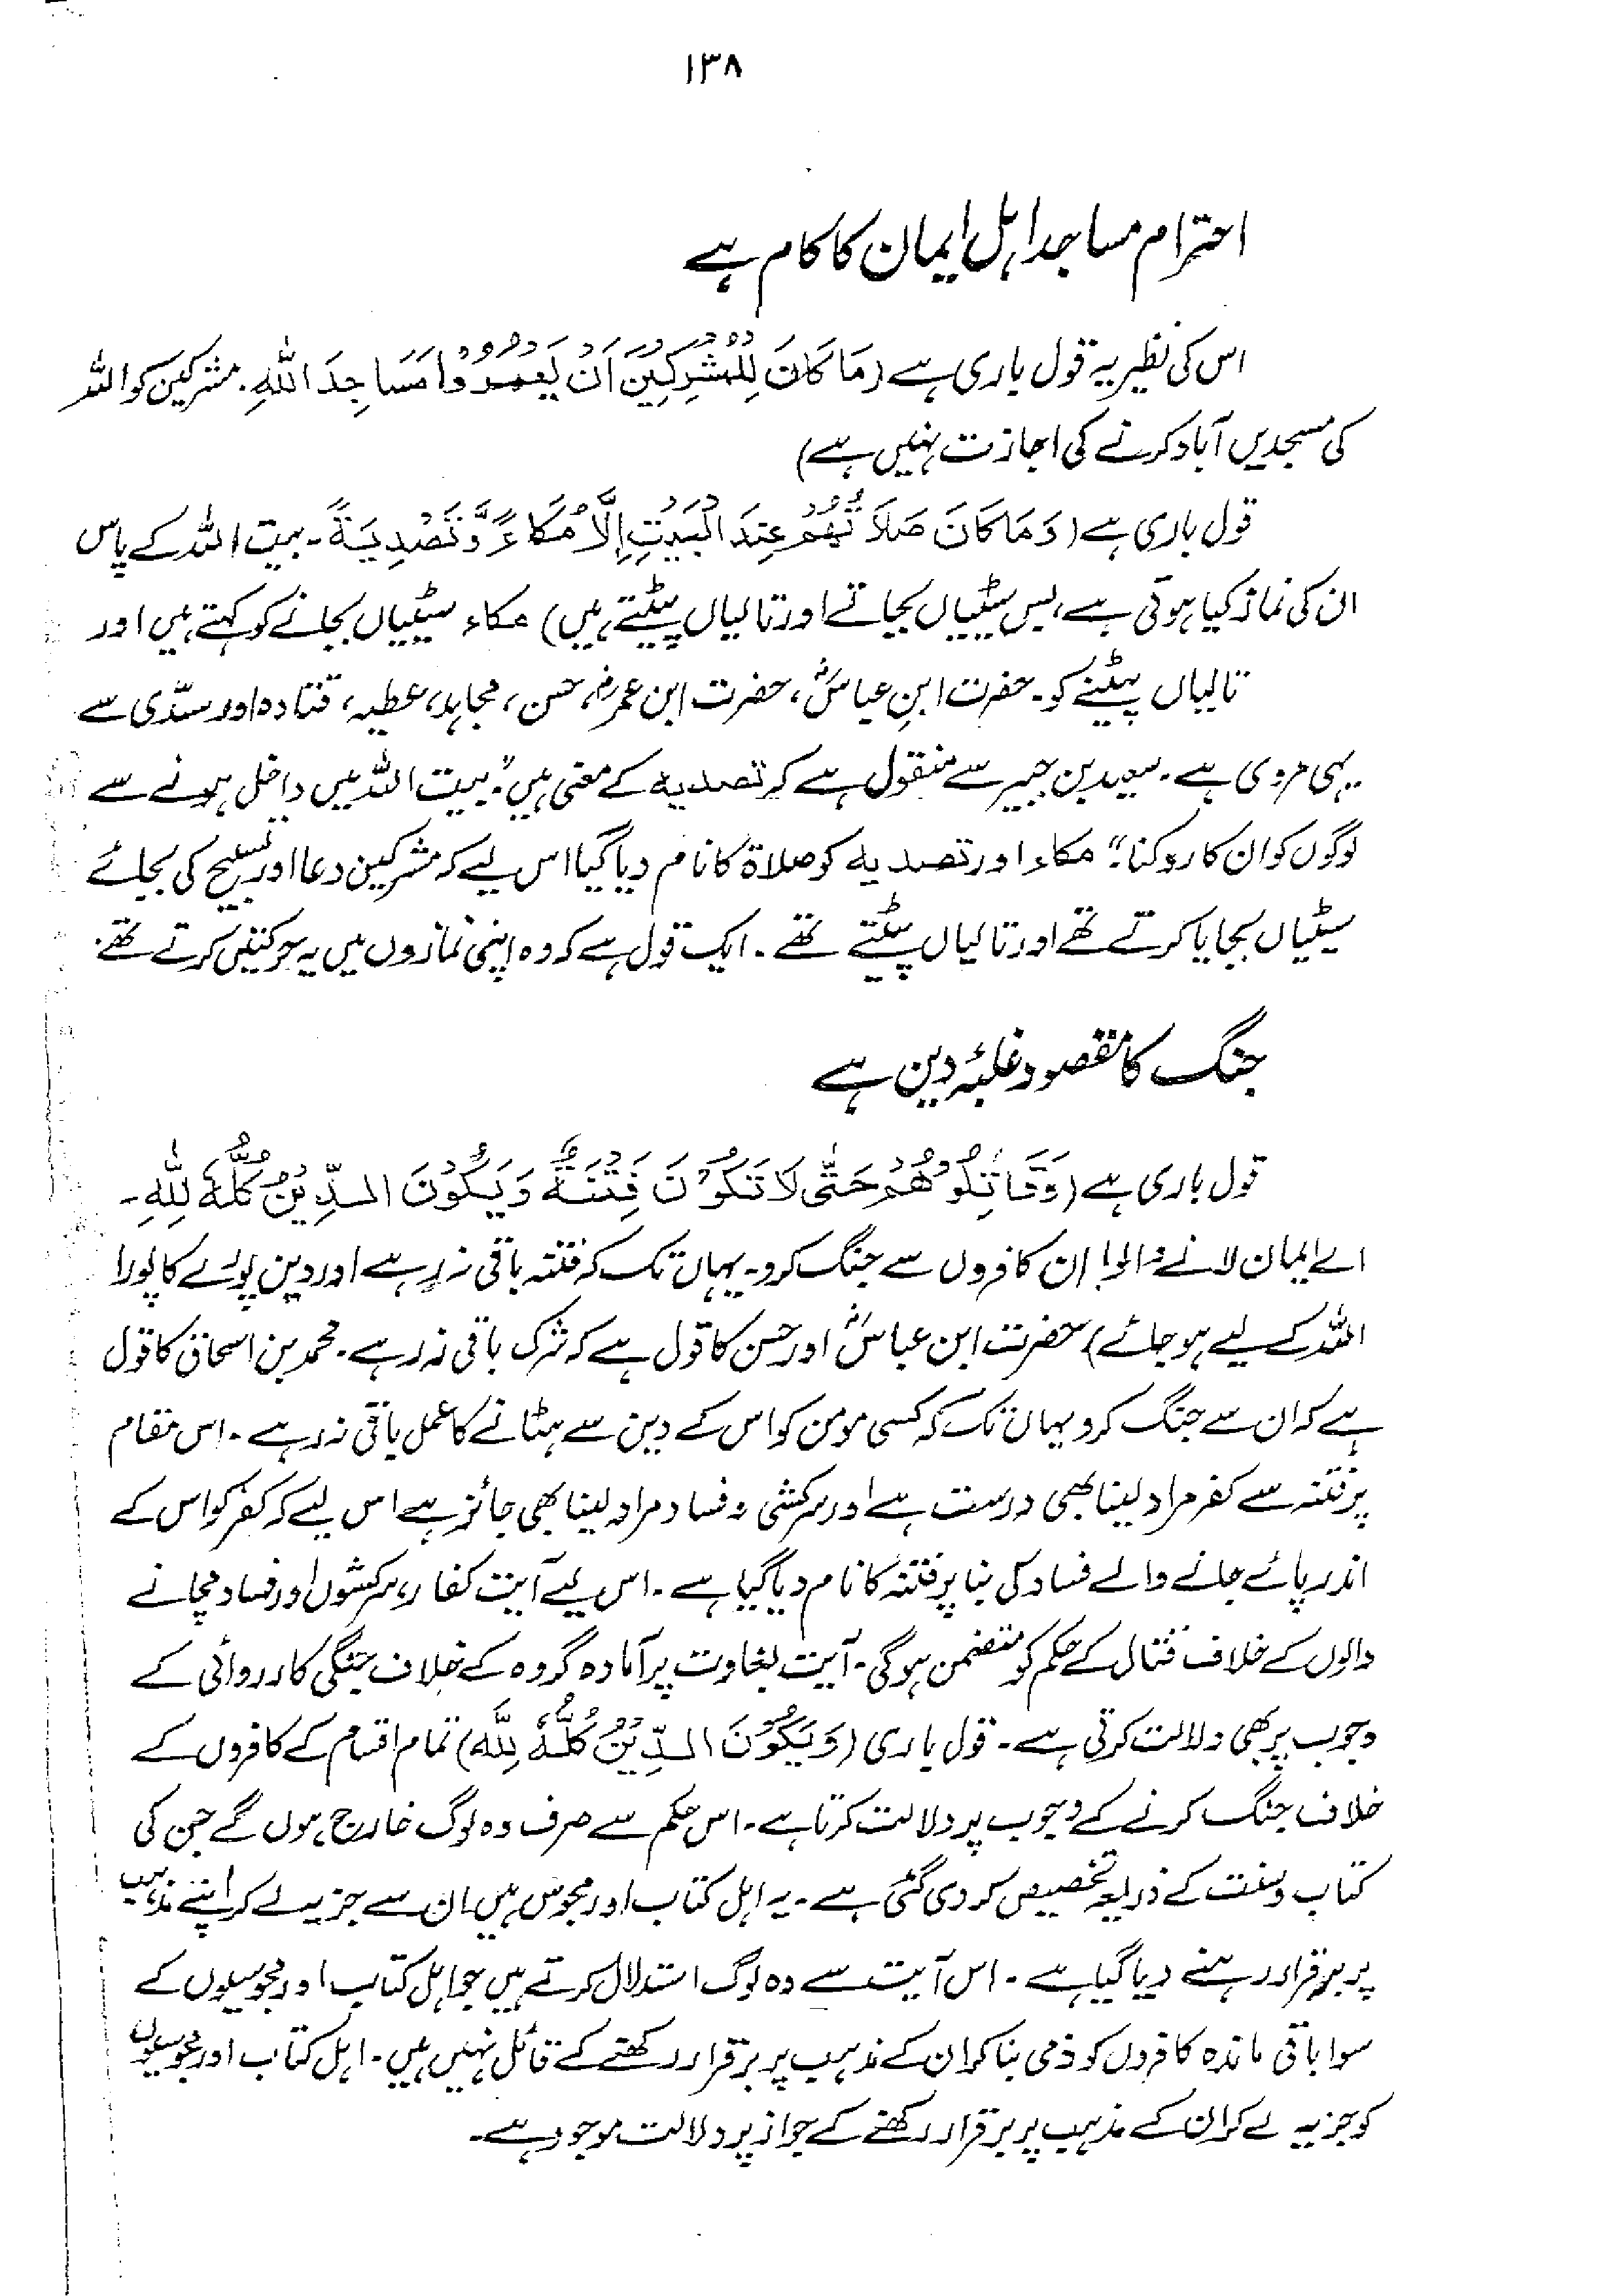 ۱۳۸
احترام مساجد اہل ایمان کا کام ہے
اس کی نظیر یہ قول باری ہے (مَا كَانَ لِلْمُشْرِكِينَ اَنْ يَعْمُرُوْا مَسَاجِدَ اللّٰهِ. مشرکین کو اللہ
کی مسجدیں آباد کرنے کی اجازت نہیں ہے)
قول باری ہے (وَمَا كَانَ صَلَاتُهُمْ عِنْدَ الْبَيْتِ اِلَّا مُكَاءً وَّتَصْدِيَةً۔ بیت اللہ کے پاس
ان کی نماز کیا ہوتی ہے، بس سیٹیاں بجاتے اور تالیاں پیٹتے ہیں) مکاء سیٹیاں بجانے کو کہتے ہیں اور
تالیاں پیٹنے کو۔ حضرت ابنِ عباسؓ، حضرت ابن عمرؓ، حسن، مجاہد، عطیہ، قتادہ اور سدّی سے
یہی مروی ہے۔ سعید بن جبیر سے منقول ہے کہ تصدیہ کے معنی ہیں "بیت اللہ میں داخل ہونے سے
لوگوں کو ان کا روکنا" مکاء اور تصدیہ کو صلاۃ کا نام دیا گیا اس لیے کہ مشرکین دعا اور تسبیح کی بجائے
سیٹیاں بجایا کرتے تھے اور تالیاں پیٹتے تھے۔ ایک قول ہے کہ وہ اپنی نمازوں میں یہ حرکتیں کرتے تھے۔
جنگ کا مقصود غلبۂ دین ہے
قول باری ہے (وَقَاتِلُوْهُمْ حَتّٰى لَا تَكُوْنَ فِتْنَةٌ وَيَكُوْنَ الدِّيْنُ كُلُّهٗ لِلّٰهِ۔
اے ایمان لانے والو! ان کافروں سے جنگ کرو۔ یہاں تک کہ فتنہ باقی نہ رہے اور دین پورے کا پورا
اللہ کے لیے ہو جائے) حضرت ابن عباسؓ اور حسن کا قول ہے کہ شرک باقی نہ رہے۔ محمد بن اسحاق کا قول
ہے کہ ان سے جنگ کرو یہاں تک کہ کسی مومن کو اس کے دین سے ہٹانے کا عمل باقی نہ رہے۔ اس مقام
پر فتنہ سے کفر مراد لینا بھی درست ہے اور سرکشی و فساد مراد لینا بھی جائز ہے اس لیے کہ کفر کو اس کے
اندر پائے جانے والے فساد کی بنا پر فتنہ کا نام دیا گیا ہے۔ اس لیے آیت کفار، سرکشوں اور فساد مچانے
والوں کے خلاف قتال کے حکم کو متضمن ہوگی۔ آیت بغاوت پر آمادہ گروہ کے خلاف جنگی کارروائی کے
وجوب پر بھی دلالت کرتی ہے۔ قول باری (وَيَكُوْنَ الدِّيْنُ كُلُّهٗ لِلّٰهِ) تمام اقسام کے کافروں کے
خلاف جنگ کرنے کے وجوب پر دلالت کرتا ہے۔ اس حکم سے صرف وہ لوگ خارج ہوں گے جن کی
کتاب وسنت کے ذریعہ تخصیص کر دی گئی ہے۔ یہ اہل کتاب اور مجوس ہیں ان سے جزیہ لے کر اپنے مذہب
پر برقرار رہنے دیا گیا ہے۔ اس آیت سے وہ لوگ استدلال کرتے ہیں جو اہل کتاب اور مجوسیوں کے
سوا باقی ماندہ کافروں کو ذمی بنا کر ان کے مذہب پر برقرار رکھنے کے قائل نہیں ہیں۔ اہل کتاب اور مجوسیوں
کو جزیہ لے کر ان کے مذہب پر برقرار رکھنے کے جواز پر دلالت موجود ہے۔